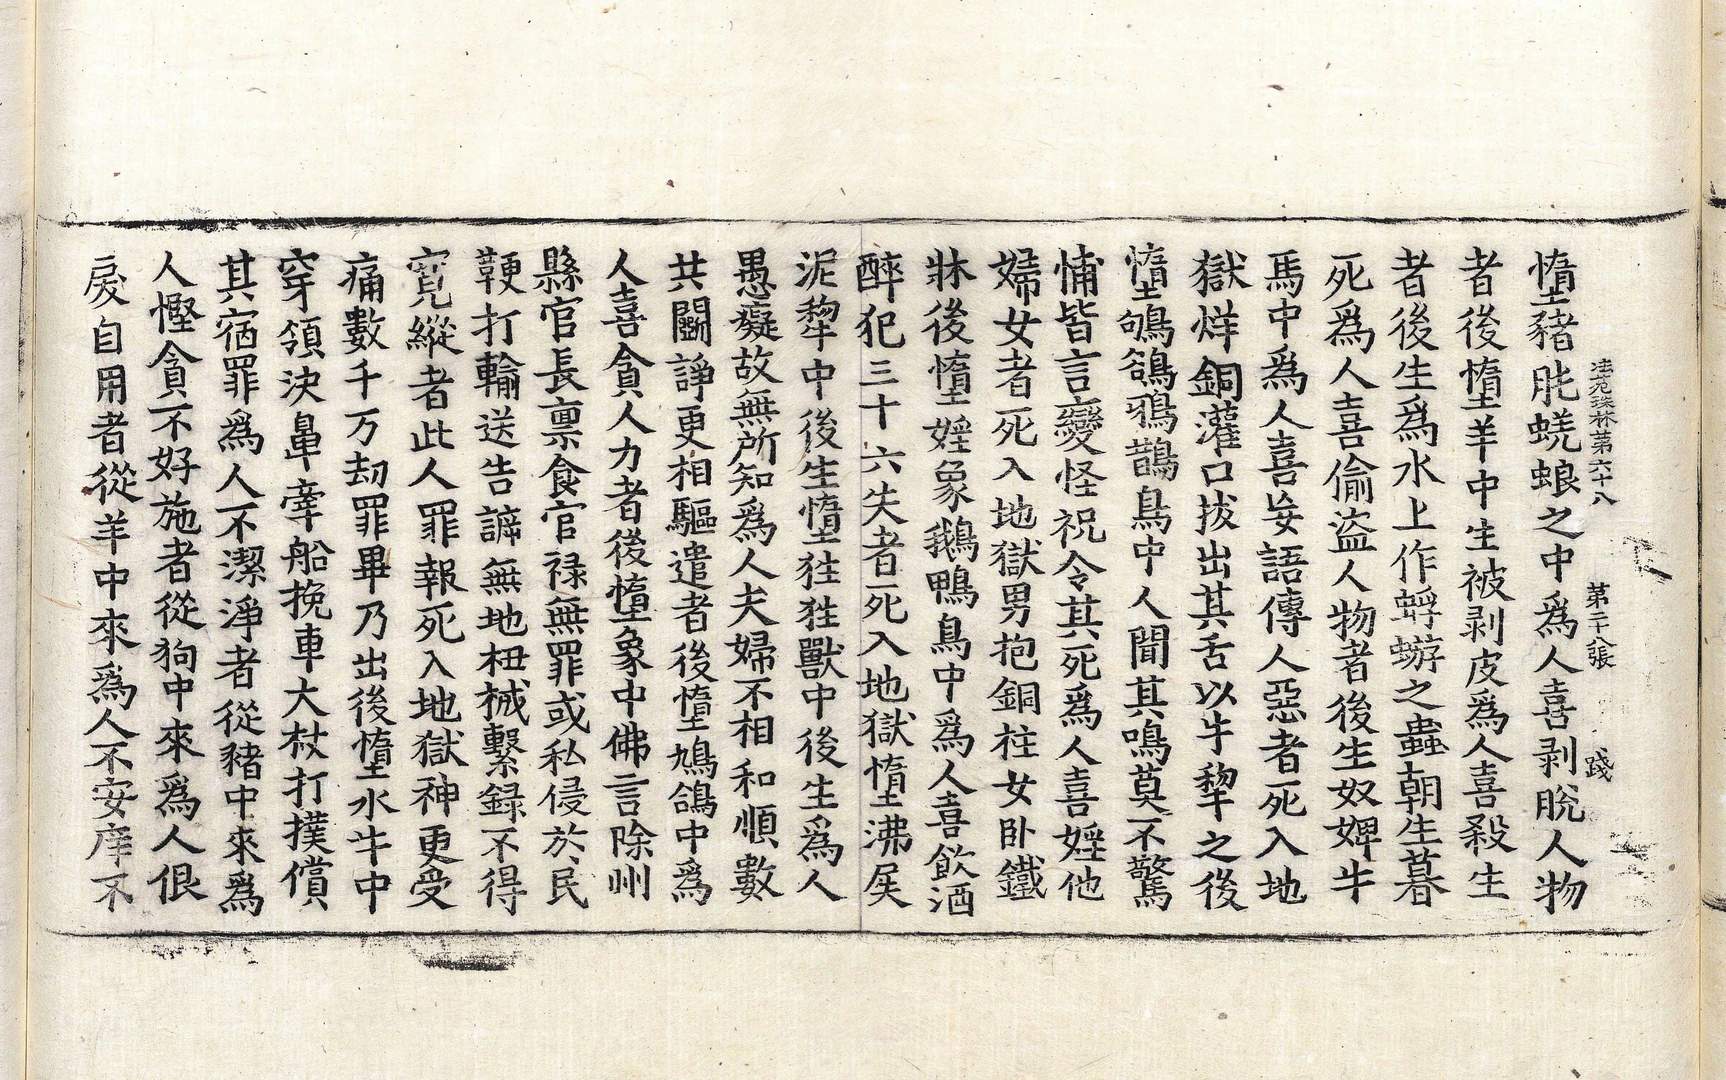 法苑珠林第六十八　第二十八張　踐
墮豬肫蜣蜋之中爲人喜剥脫人物
者後墮羊中生被剥皮爲人喜殺生
者後生爲水上作蜉蝣之蟲朝生暮
死爲人喜偷盜人物者後生奴婢牛
馬中爲人喜妄語傳人惡者死入地
獄烊銅灌口拔出其舌以牛犂之後
墮鴝鵒鴉鵲鳥中人聞其鳴莫不驚
怖皆言變怪祝令其死爲人喜婬他
婦女者死入地獄男抱銅柱女卧鐵
牀後墮婬象鵝鴨鳥中爲人喜飲酒
醉犯三十六失者死入地獄墮沸屎
泥犂中後生墮狌狌獸中後生爲人
愚癡故無所知爲人夫婦不相和順數
共鬭諍更相驅遣者後墮鳩鴿中爲
人喜貪人力者後墮象中佛言除州
縣官長禀食官禄無罪或私侵於民
鞕打輸送告諦無地杻械繫録不得
寛縱者此人罪報死入地獄神更受
痛數千万劫罪畢乃出後墮水牛中
穿領决鼻牽船挽車大杖打撲償
其宿罪爲人不潔淨者從豬中來爲
人慳貪不好施者從狗中來爲人佷
戾自用者從羊中來爲人不安庠不